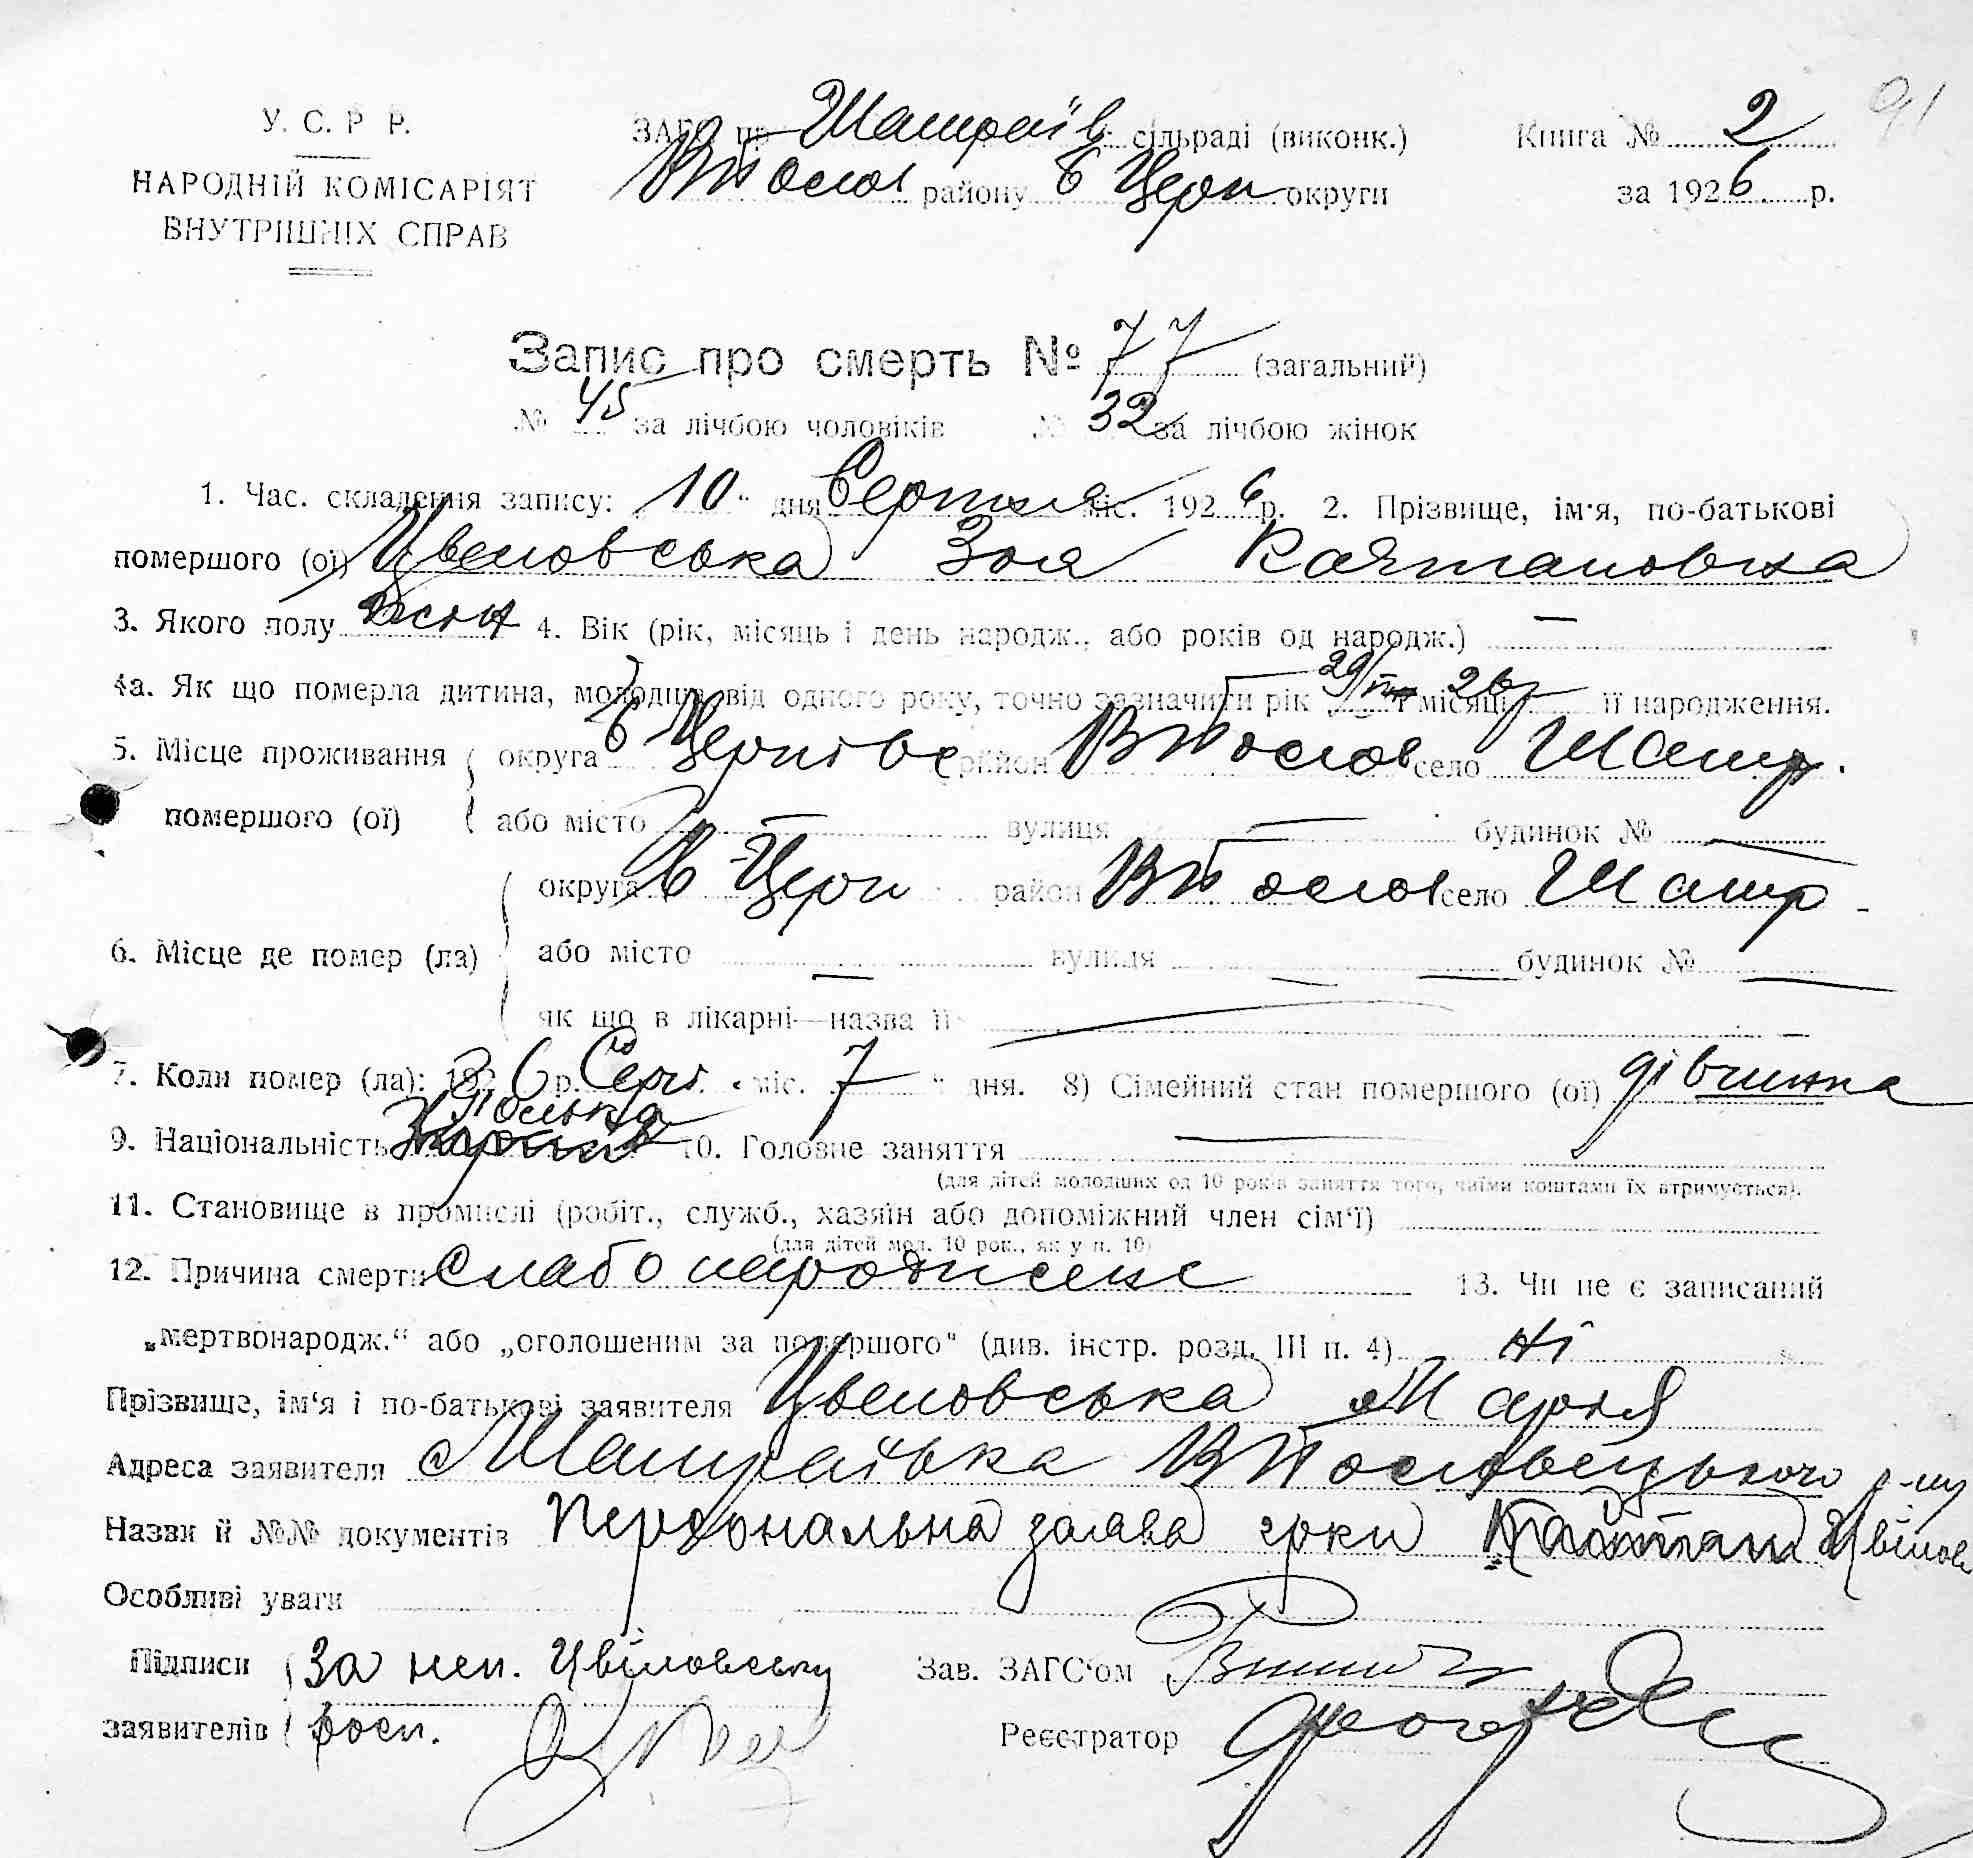 91
У. С. Р Р.
НАРОДНІЙ КОМІСАРІЯТ
ВНУТРІШНІХ СПРАВ
ЗАГС пр Шатраїв сільраді (виконк.)
районy Б Церк округи
Книга № 2
за 1926 р.
Запис про смерть № 77 (загальний)
№ 45 за лічбою чоловіків № 32 за лічбою жінок
1. Час. складення запису: 10 " дня Серпня міс. 1926 р. 2. Прізвище, ім'я, по-батькові
помершого (ої) Цвеловська Зоя Каятановна
3. Якого полу жін 4. Вік (рік, місяць і день народж., або років од народж.) —
4а. Як що померла дитина, молодша від одного року, точно зазначити рік 29/ 26 і місяць її народження.
5. Місце проживання округа Б Церківс район село Шатр.
помершого (ої) або місто — вулиця — будинок № —
округа Б-Церк район село Шатр
6. Місце де помер (ла) або місто — вулиця — будинок № —
як що в лікарні—назва її —
7. Коли помер (ла): 1926 р. Серп. міс. 7 " дня. 8) Сімейний стан помершого (ої) дівчинка
9. Національність Полька 10. Головне заняття —
(для дітей молодших од 10 років заняття того, чиїми коштами їх втримується).
11. Становище в промислі (робіт., служб., хазяїн або допоміжний член сім'ї)
(для дітей мол. 10 рок., як у п. 10)
12. Причина смерти Слабо народжене 13. Чи не є записаний
„мертвонародж." або „оголошеним за помершого" (див. інстр. розд. III п. 4) Ні
Прізвище, ім'я і по-батькові заявителя Цвеловська Марія
Адреса заявителя Шатраївка р-ну
Назви й №№ документів Персональна заява гр-ки Цвілов
Особливі уваги
Підписи За неп. Цвіловську
заявителів росп.
Зав. ЗАГС'ом
Реєстратор